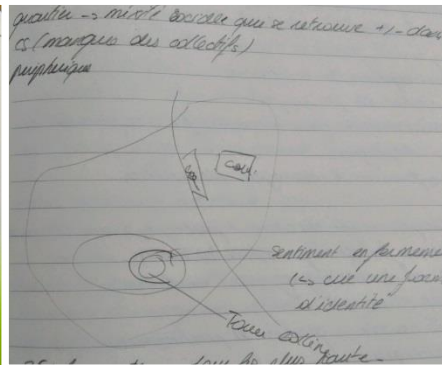 quartier -> mixité sociale qui se retrouve +/- dans
CS (manque des collectifs)
périphérique
coll.
sentiment enfermement
(-> crée une form
d'identité
Tour colline
plus haute